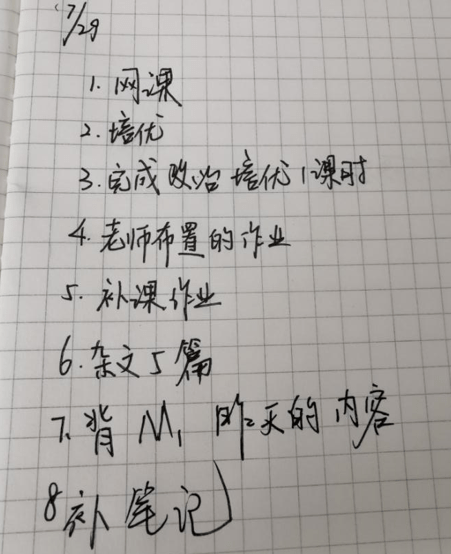 7/29
1. 网课
2. 培优
3. 完成政治培优1课时
4. 老师布置的作业
5. 补课作业
6. 杂文5篇
7. 背 M1 昨天的内容
8 补笔记